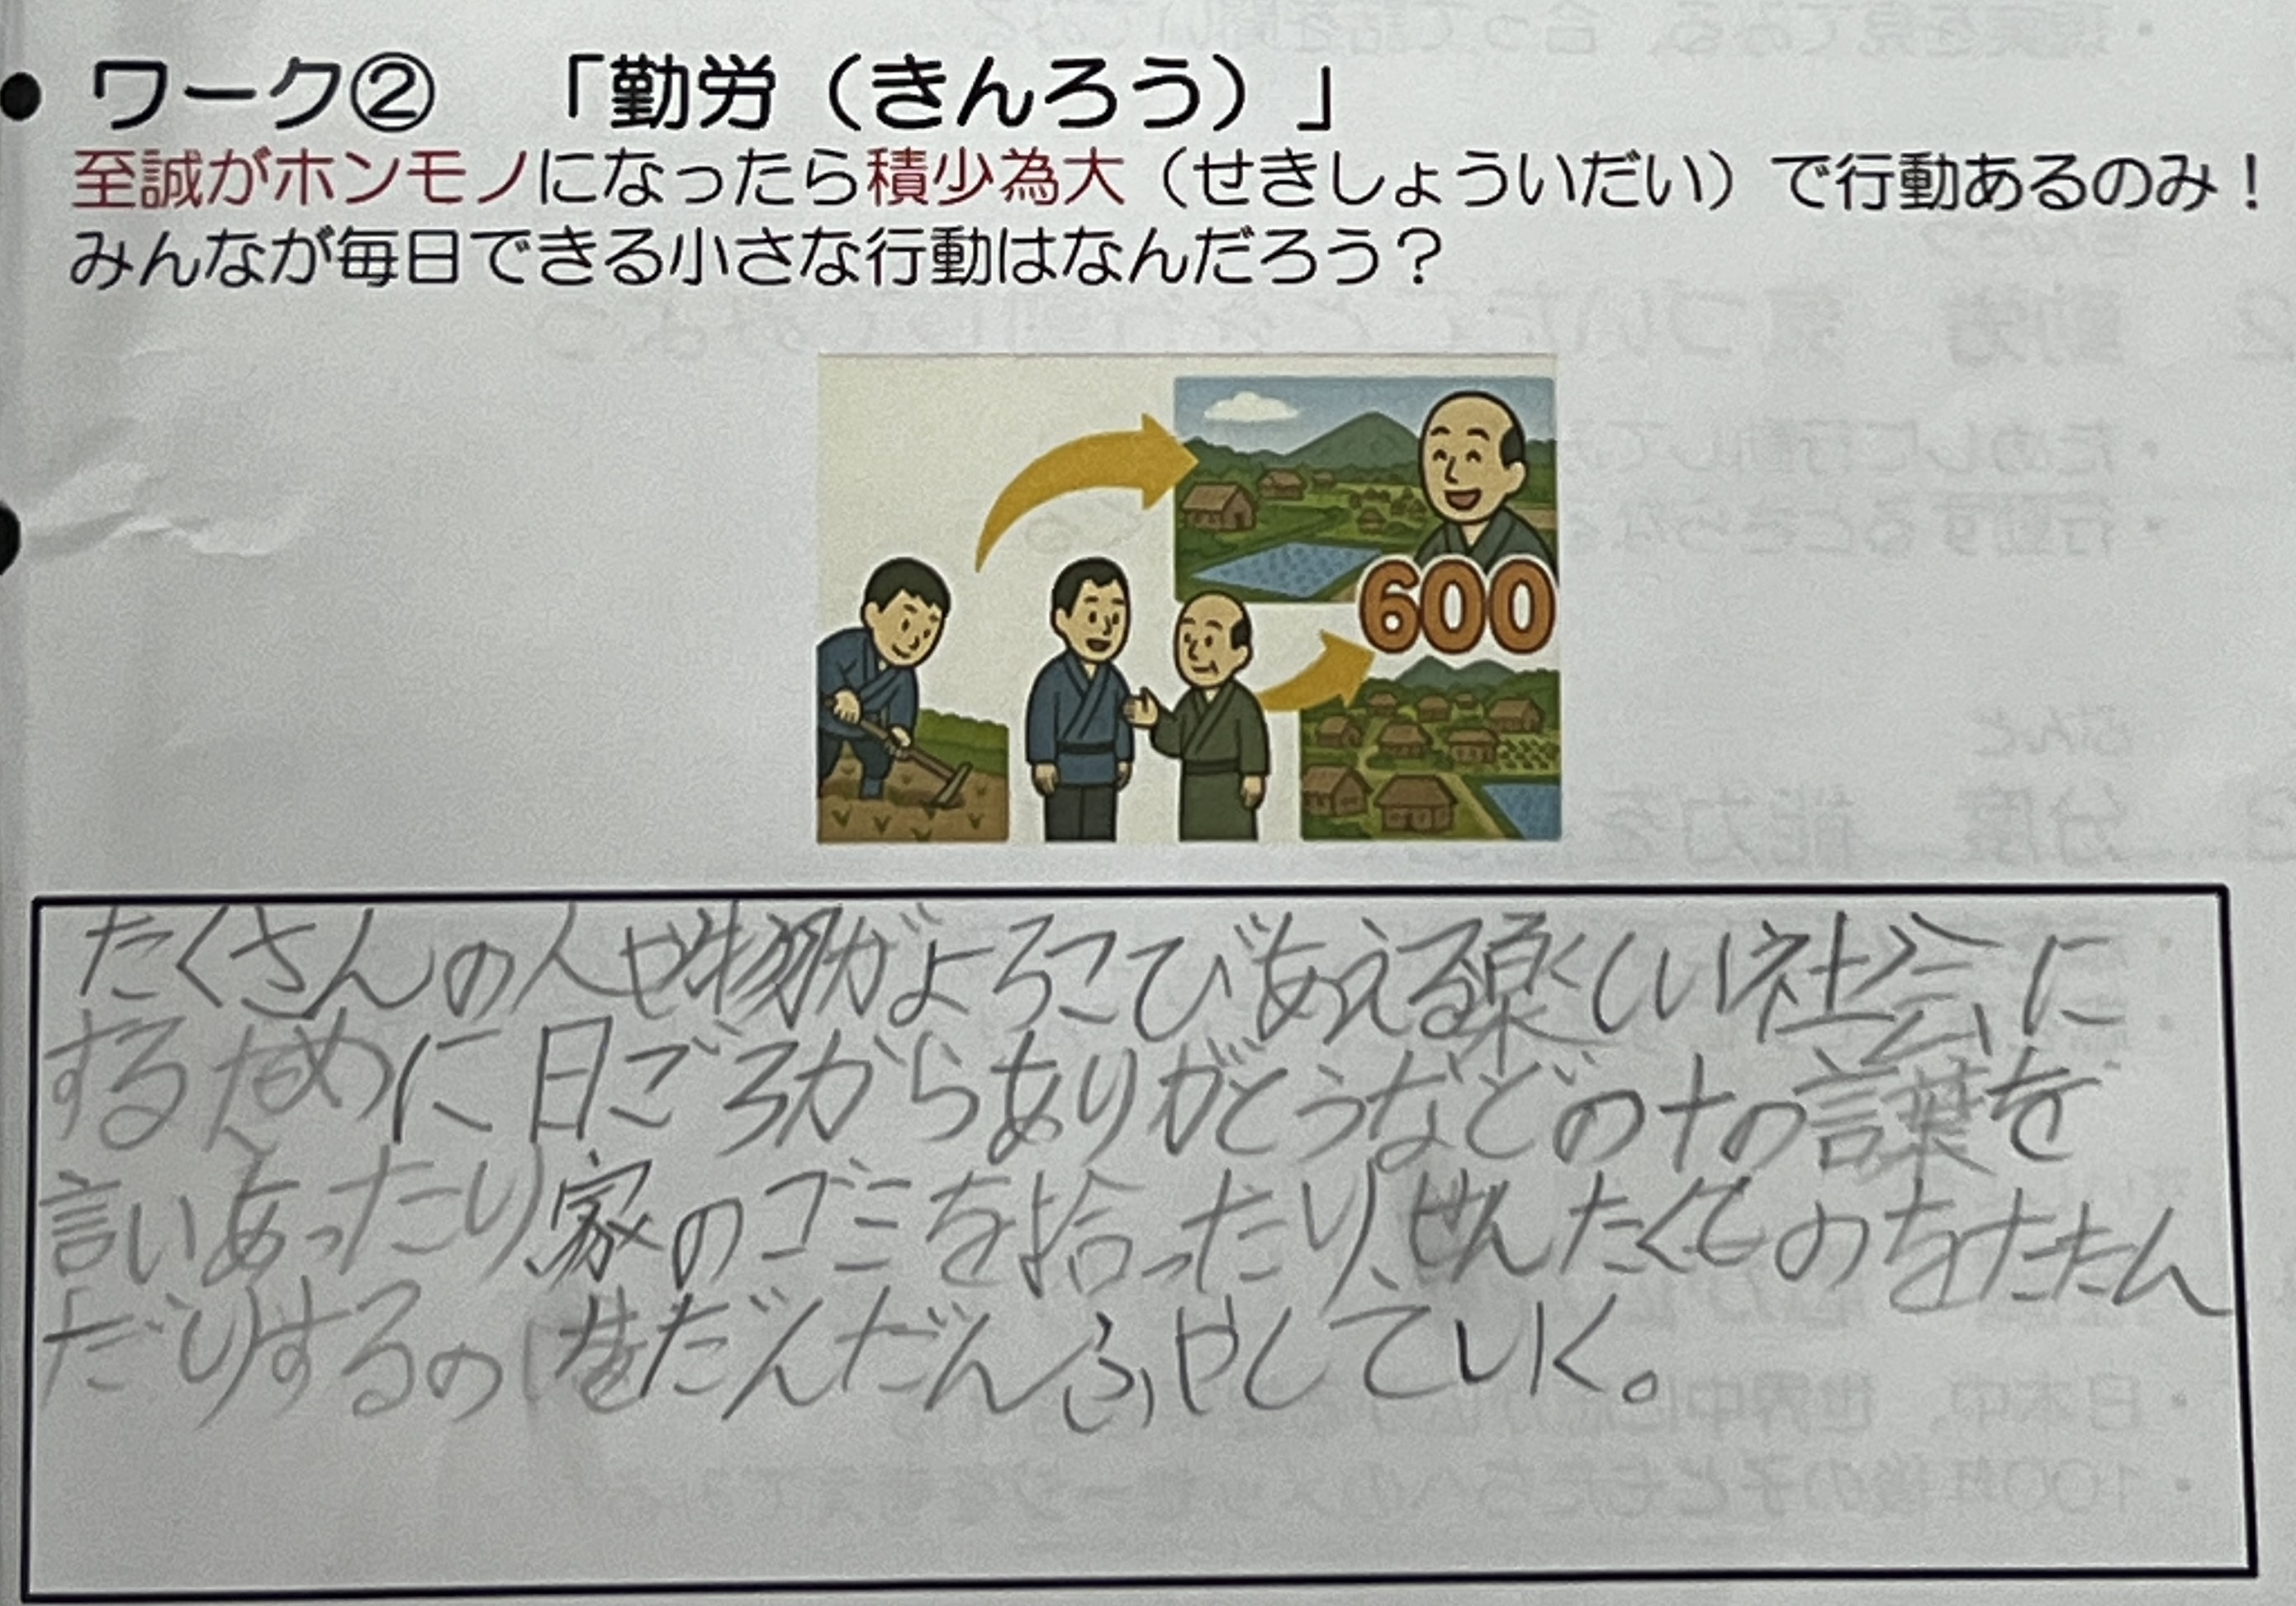 ● ワーク② 「勤労（きんろう）」
至誠がホンモノになったら積少為大（せきしょういだい）で行動あるのみ！
みんなが毎日できる小さな行動はなんだろう？
600
たくさんの人や物がよろこびあえる楽しい社会に
するために日ごろからありがとうなどの＋の言葉を
言いあったり、家のゴミを拾ったり、せんたくものをたたん
だりするのをだんだんふやしていく。